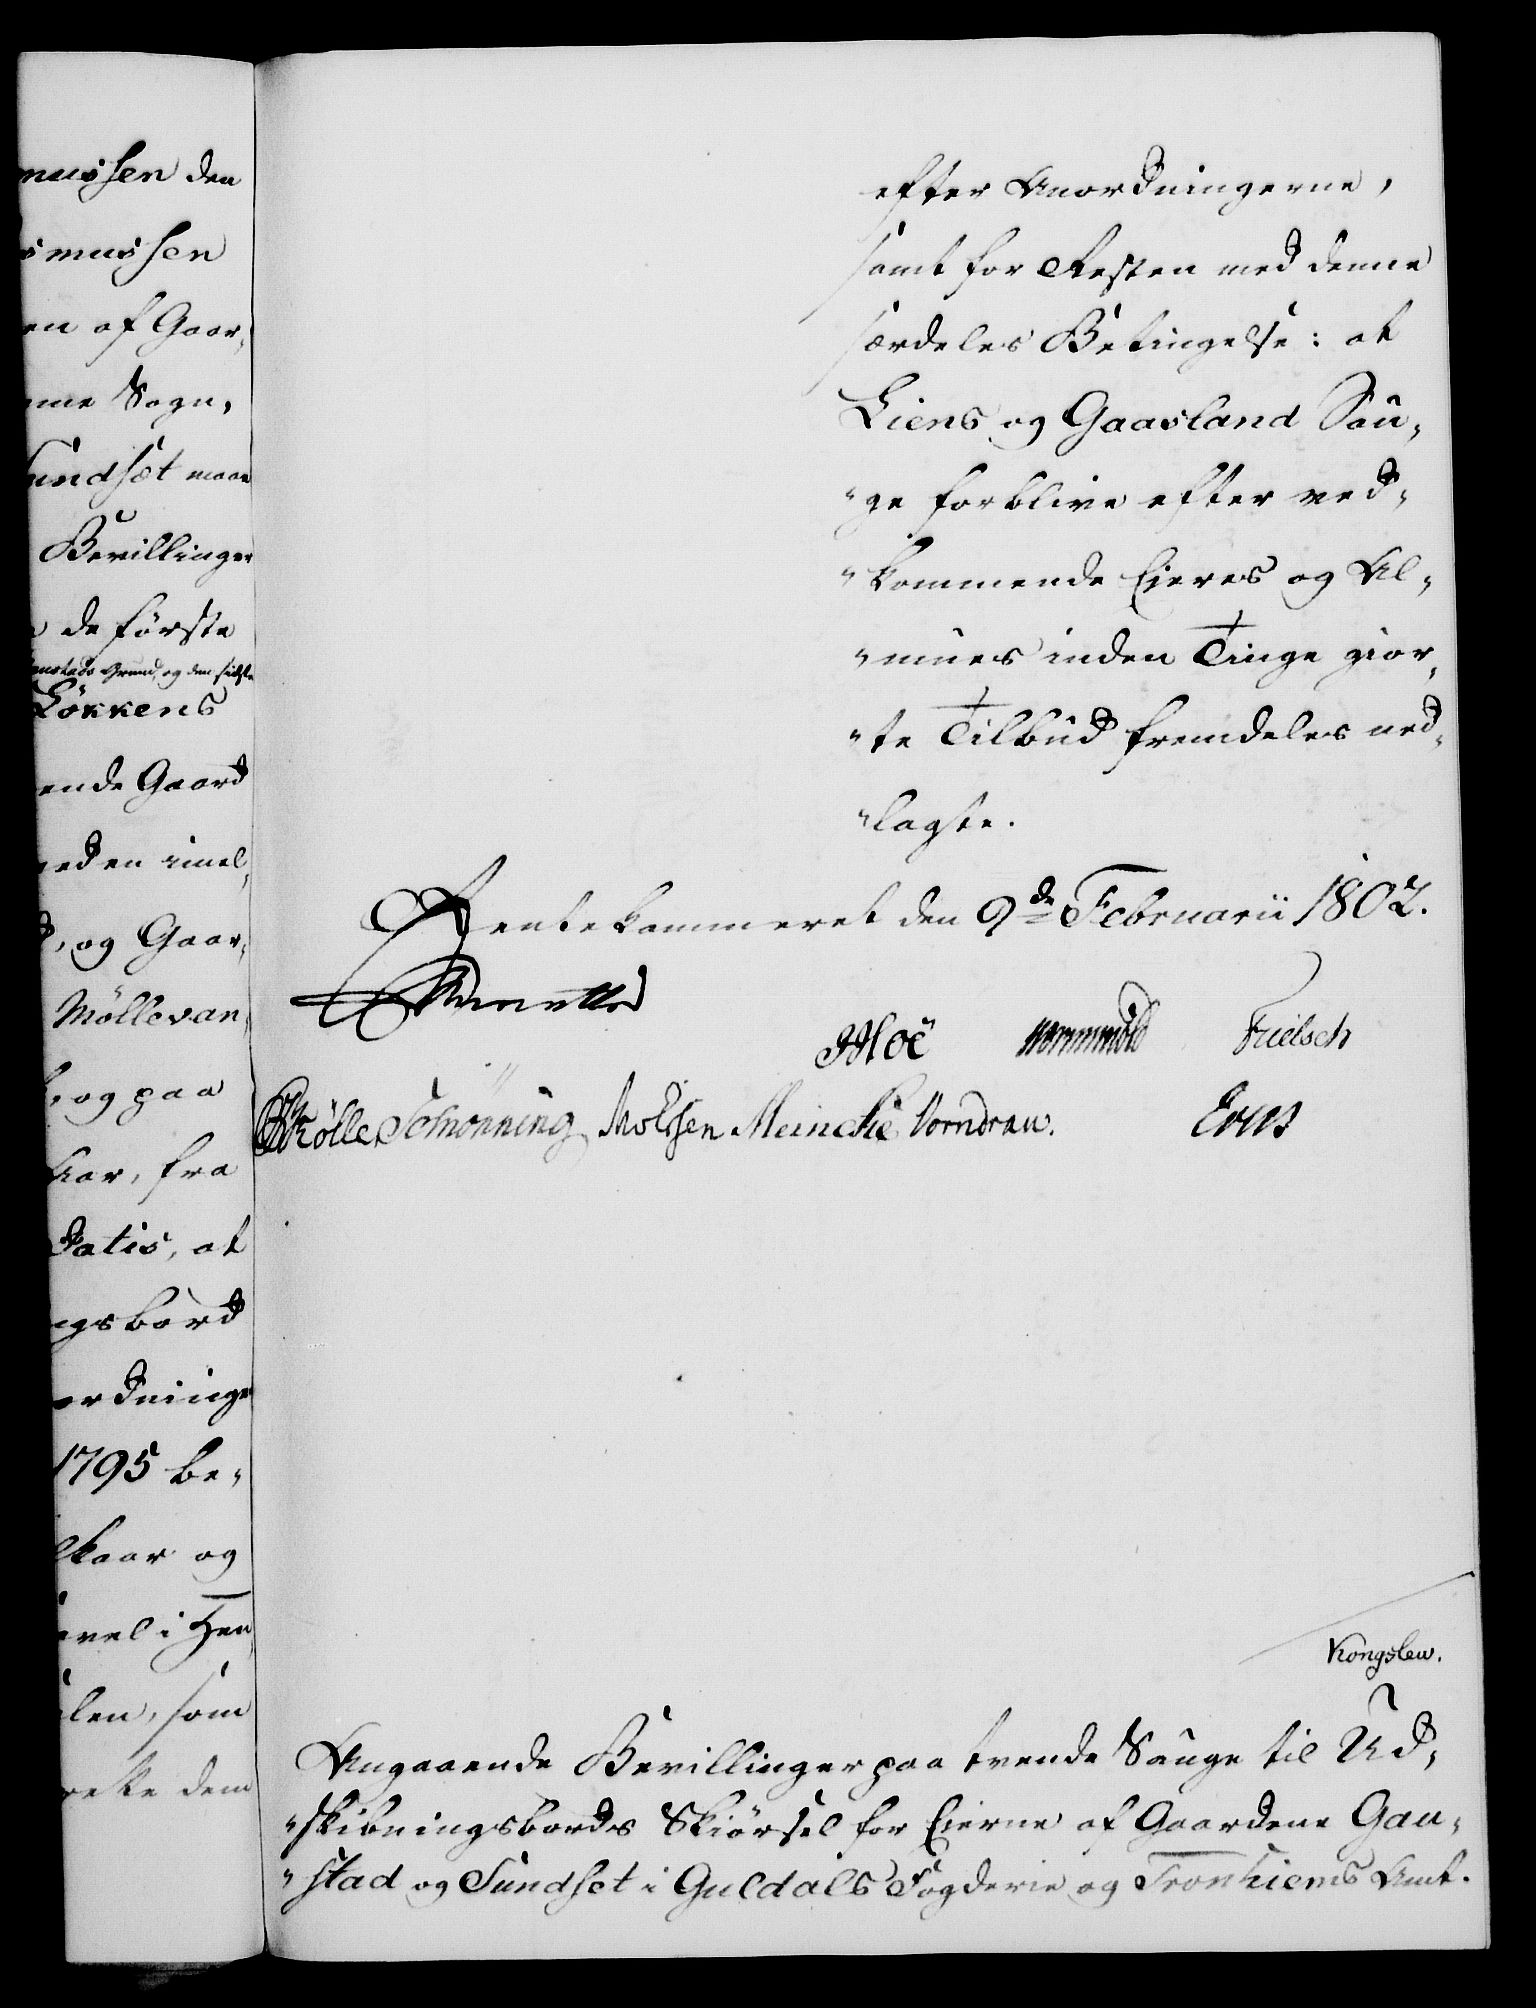 mussen den
smussen
en af Gaar,
nne Sogn,
Sundset maae
Bevillinger
de første
Grund, og den sidste
Løkkens
ende Gaard
neden imel,
og Gaar,
Møllevan,
og paa
kaar, fra
Datis, at
ngsbord
ordninge
1795 be,
lkaar og
avel i Hen,
len, som
dem
efter Anordningerne,
samt for Resten med denne
særdeles Betingelse: at
Liens og Gaasland Sau,
"ge forblive efter ved,
"kommende Eieres og Al,
"mues inden Tinge gior,
"te Tilbud fremdeles ned,
"lagte.
Rentekammeret den 9de Februarii 1802.
JHoë Wormskiold Frielsch
Kølle Schønning Molssen Meincke Vorndran. Evers
Kongslew.
Angaaende Bevillinger paa tvende Sauge til Ud,
"skibningsbords Skiørsel for Eierne af Gaardene Gau,
"stad og Sundset i Guldals Fogderie og Tronhiems Amt.